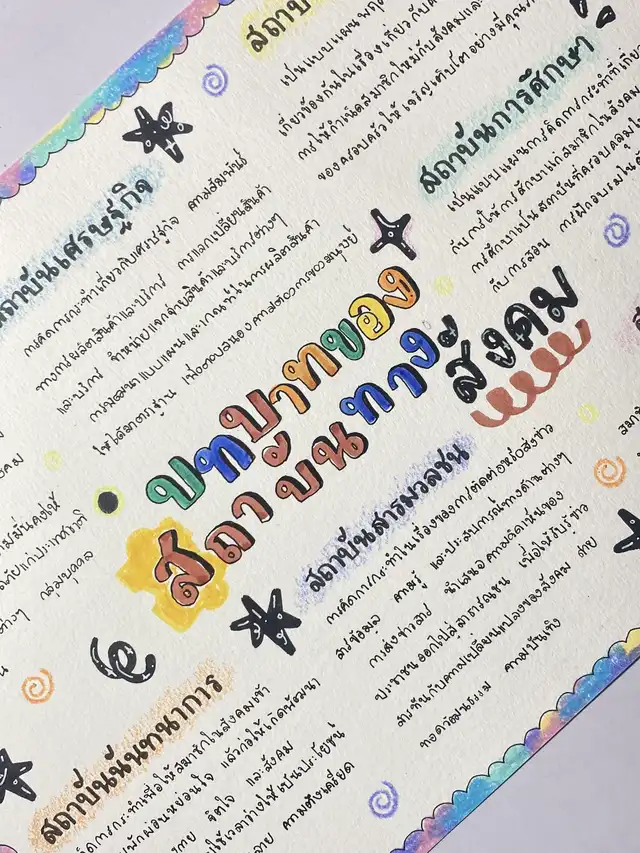 สถาบัน
เป็นแบบแผนพฤ
เกี่ยวข้องกันในเรื่องเกี่ยวกับค
การให้กำเนิดสมาชิกใหม่กับสังคมและ
ของครอบครัวให้เจริญเติบโตอย่างมีคุณ
สถาบันการศึกษา
เป็นแบบแผนการคิดการกระทำที่เกี่ยว
กับการให้การศึกษาแก่สมาชิกในสังคม
การศึกษาเป็นสถาบันที่ครอบคลุมใน
กับการสอน การฝึกอบรมใน
สถาบันเศรษฐกิจ
การคิดการกระทำเกี่ยวกับเศรษฐกิจ ความสัมพันธ์
ทางการผลิตสินค้าและบริการ การแลกเปลี่ยนสินค้า
และบริการ จำหน่ายแจกจ่ายสินค้าและบริการต่างๆ
การพัฒนาแบบแผนและเกณฑ์ในการผลิตสินค้า
ให้ได้มาตรฐาน เพื่อตอบสนองความต้องการของมนุษย์
บทบาทของ
สถาบันทางสังคม
สถาบันสารมวลชน
การคิดการกระทำในเรื่องของการติดต่อหรือส่งข่าว
สารข้อมูล ความรู้ และประสบการณ์ทางด้านต่างๆ
การส่งข่าวสาร นำเสนอความคิดเห็นของ
ประชาชนออกไปสู่สาธารณชน เพื่อให้รับรู้ข่าว
สารทันกับความเปลี่ยนแปลงของสังคม สาย
ทอดวัฒนธรรม ความบันเทิง
สถาบันนันทนาการ
คิดการกระทำเพื่อให้สมาชิกในสังคมเข้า
พักผ่อนหย่อนใจ แล้วก่อให้เกิดพัฒนา
กาย จิตใจ และสังคม
ใช้เวลาว่างให้เป็นประโยชน์
ความตึงเครียด